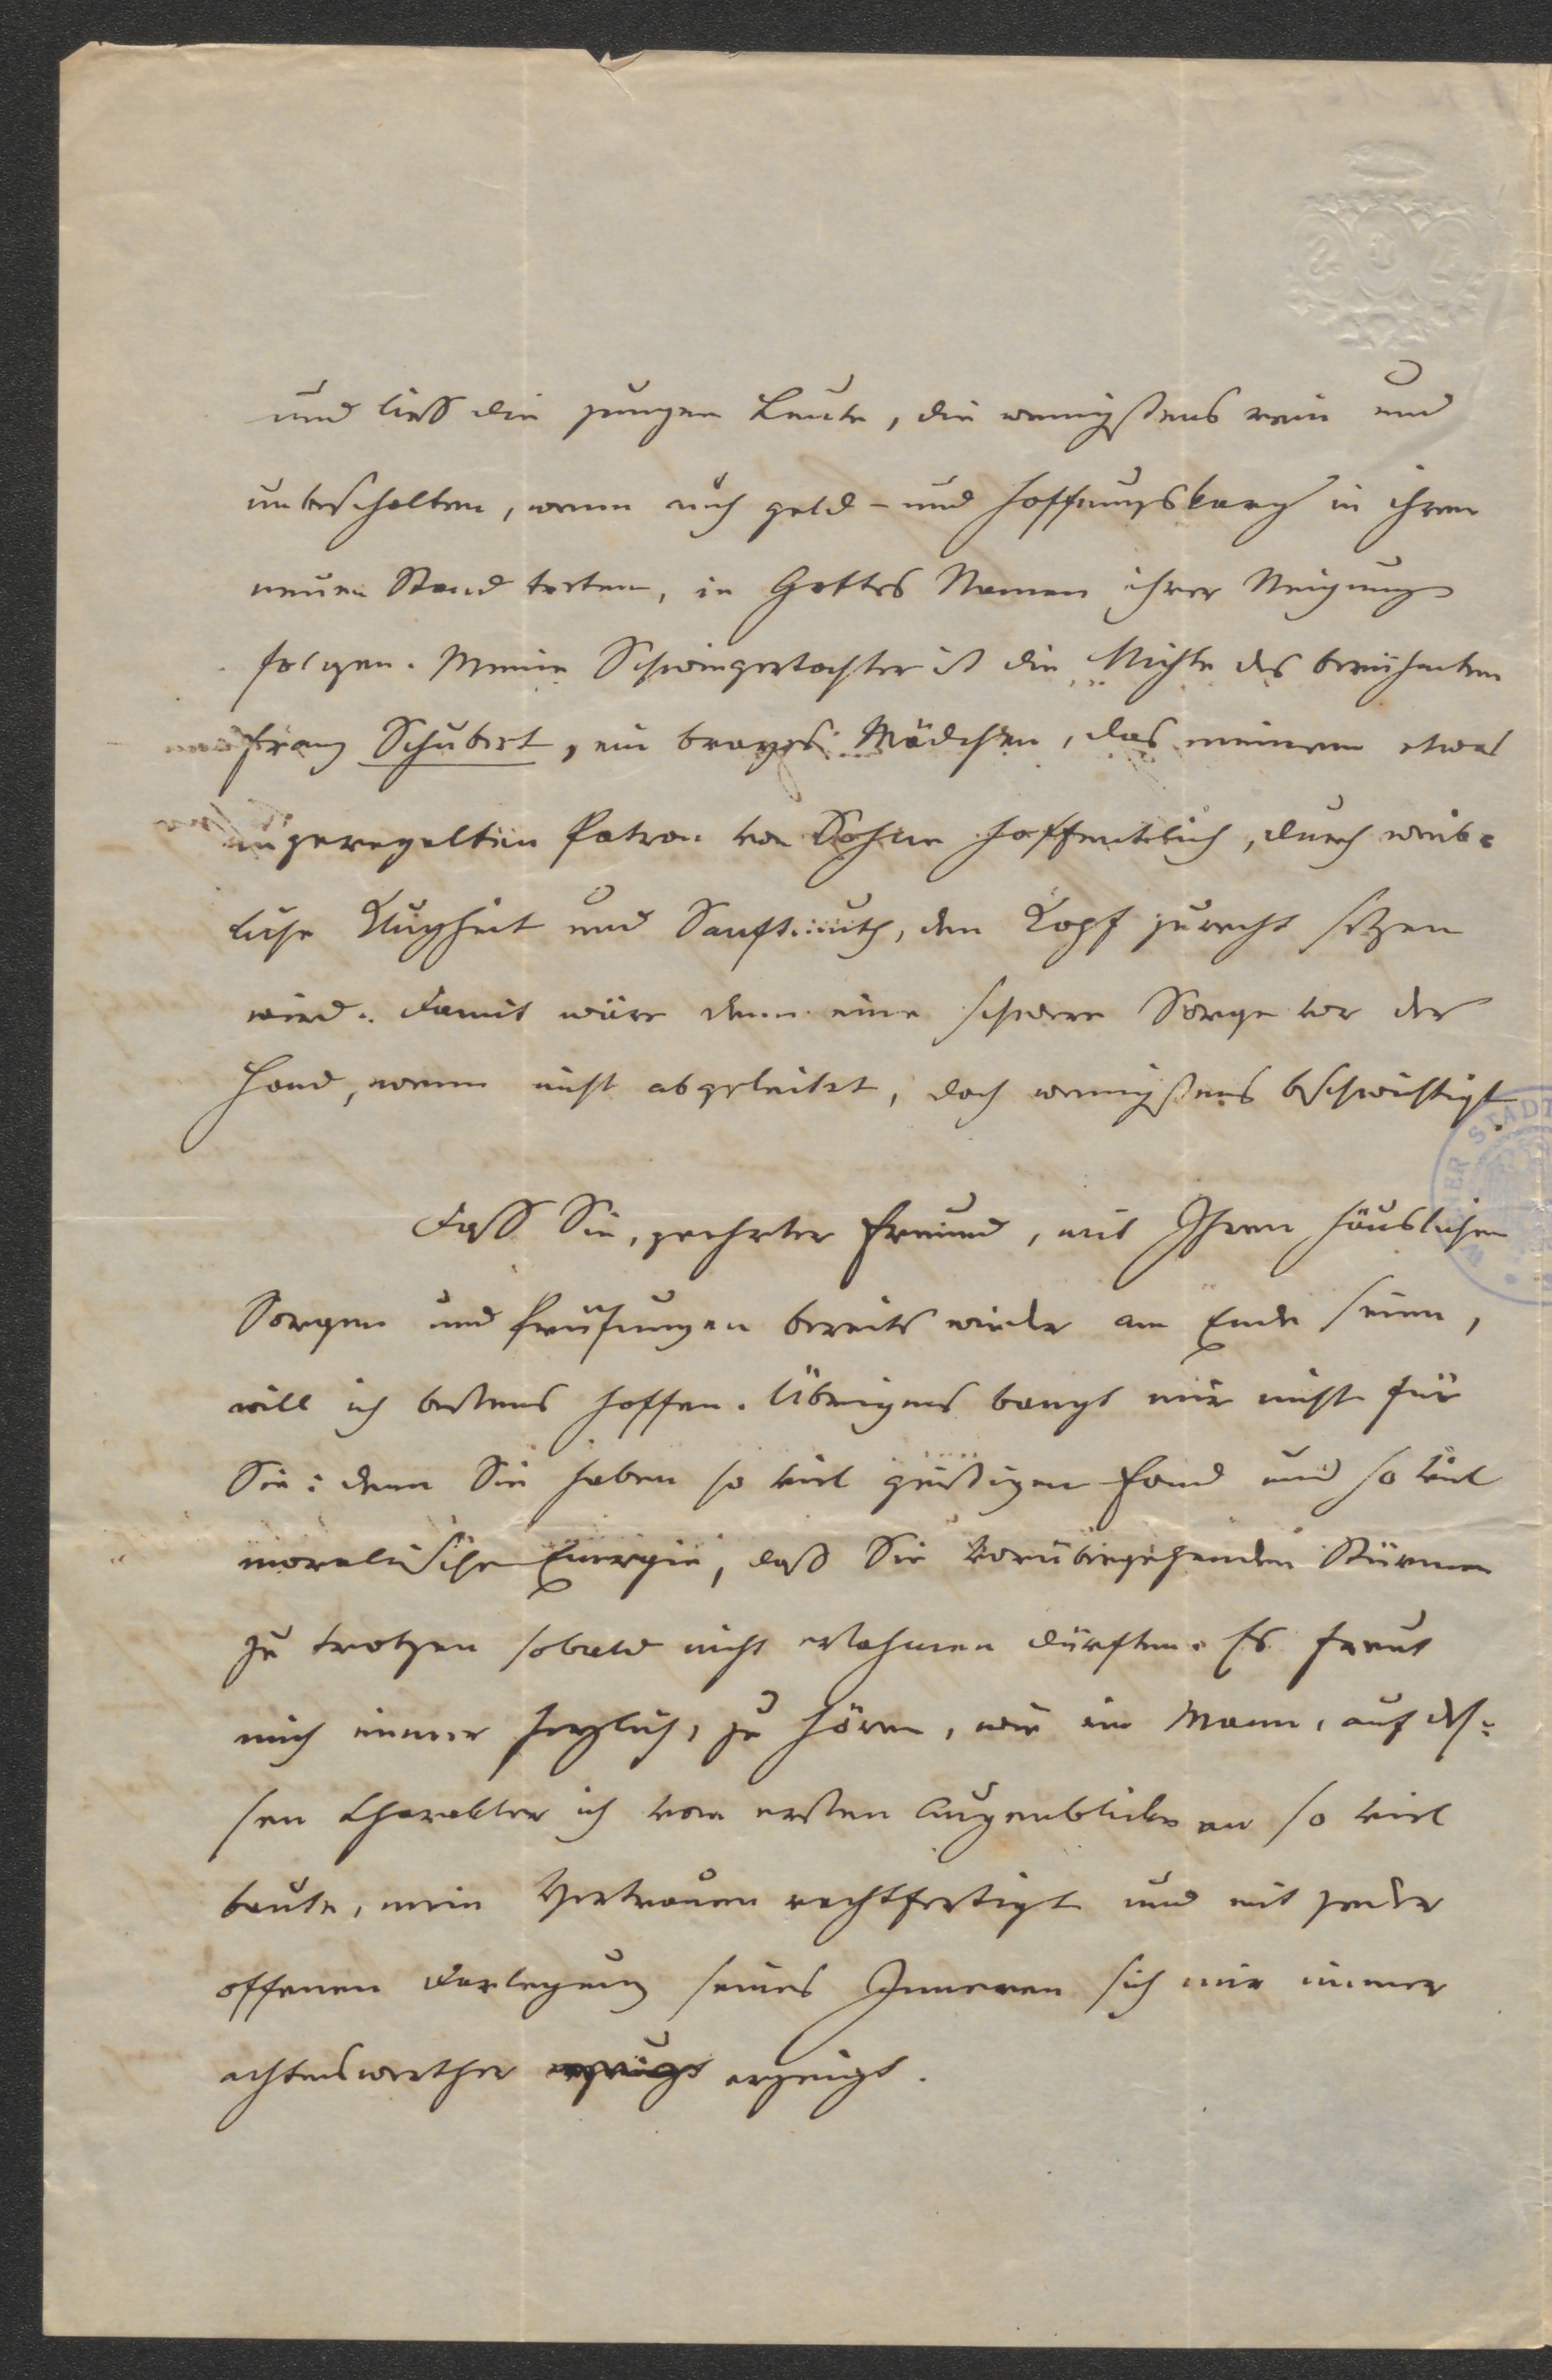 und ließ die jungen Leute, die wenigstens rein und
unbescholten, wenn auch geld- und hoffnungskarg in ihren
neuen Stand treten, in Gottes Namen ihrer Neigung
folgen. Meine Schwiegertochter ist die Nichte des berühmten
Franz Schubert, ein braves Mädchen, das meinem etwas
ungeregelten Patron von Sohne hoffentlich, durch weib-
liche Klugheit und Sanftmuth, den Kopf zurecht setzen
wird. Damit wäre denn eine schwere Sorge vor der
Hand, wenn nicht abgeleitet, doch wenigstens beschwichtigt.
Daß Sie, geehrter Freund, mit Ihren häuslichen
Sorgen und Prüfungen bereits wieder am Ende seien,
will ich bestens hoffen. Übrigens bangt mir nicht für
Sie: denn Sie haben so viel geistigen Fond und so viel
moralische Energie, daß Sie vorübergehenden Stürmen
zu trotzen sobald nicht erlahmen dürften. Es freut
mich immer herzlich, zu hören, wie ein Mann, auf des-
sen Charakter ich vom ersten Augenblicke an so viel
baute, mein Vertrauen rechtfertigt und mit jeder
offenen Darlegung seines Inneren sich mir immer
achtenswerther erzeigt.
WIENER STADT